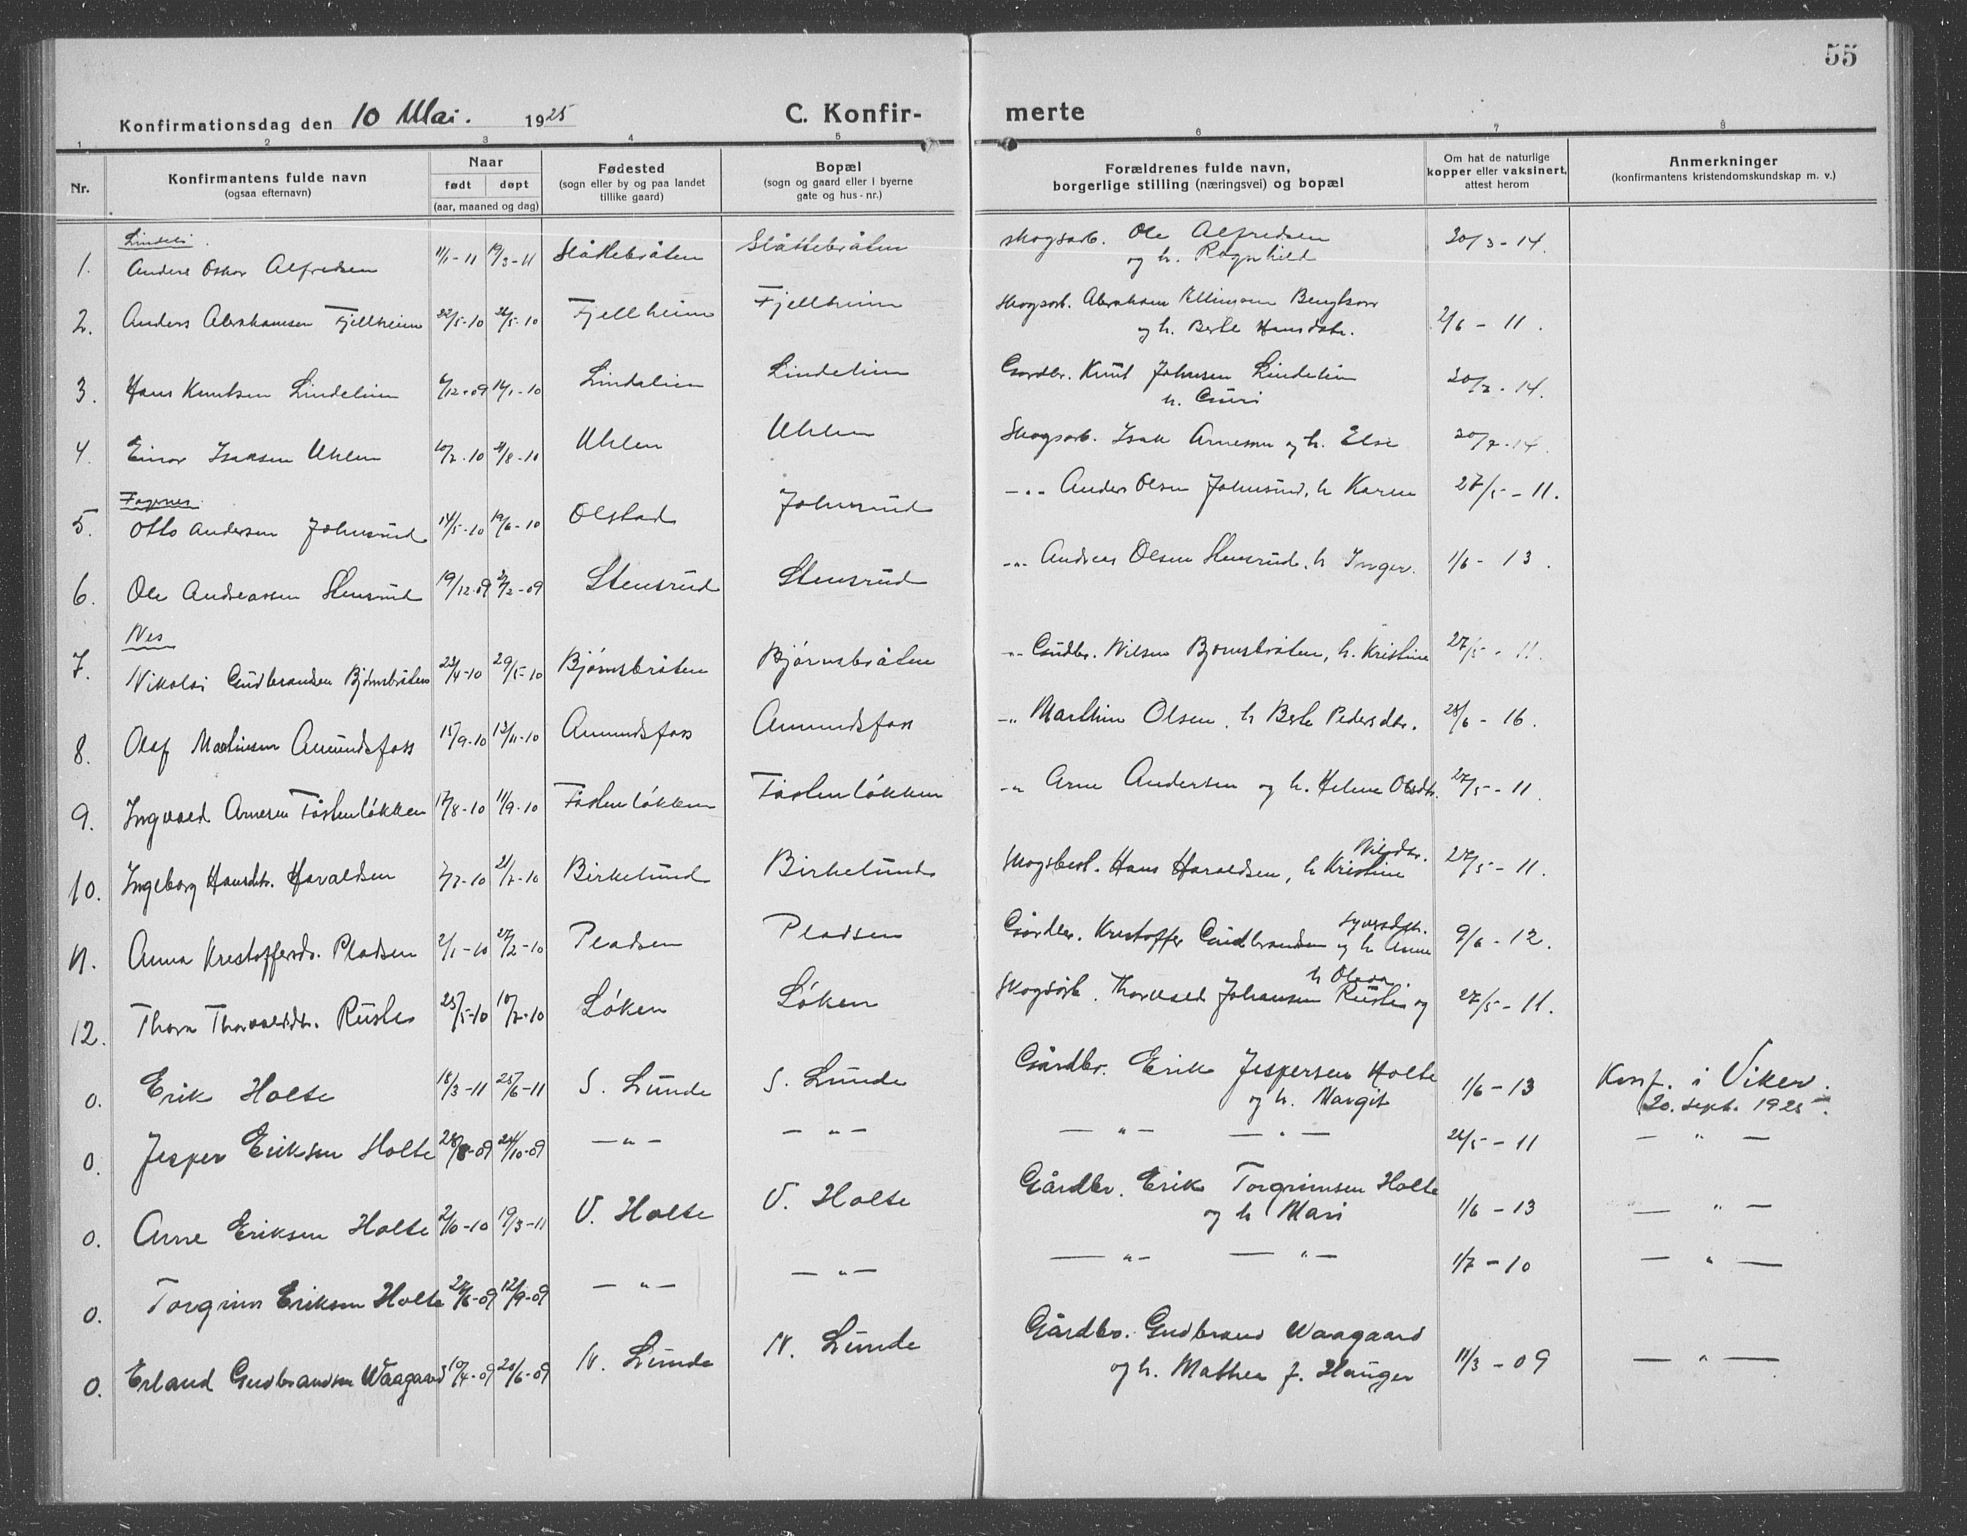 55
Konfirmationsdag den 10 Mai. 1925 C. Konfir- merte
1 2 3 4 5 6 7 8
Nr.
Konfirmantens fulde navn
(ogsaa efternavn)
Naar
født døpt
(aar, maaned og dag)
Fødested
(sogn eller by og paa landet
tillike gaard)
Bopæl
(sogn og gaard eller i byerne
gate og hus-nr.)
Forældrenes fulde navn,
borgerlige stilling (næringsvei) og bopæl
Om hat de naturlige
kopper eller vaksinert,
attest herom
Anmerkninger
(konfirmantens kristendomskundskap m. v.)
Lindeli.
1. Anders Oskar Alfredsen 11/1-11 19/3-11 Slåttebråten Slåttebråten skogsarb. Ole Alfredsen 20/3-14.
og h. Ragnhild
2. Anders Abrahamsen Fjellheim 22/5-10 Fjellheim Fjellheim Skogsarb. Abraham Ellingsen Bengtson 2/6-11.
og h. Berte Hansdatr.
3. Hans Knutsen Lindelien 6/12-09 16/1-10 Lindelien Lindelien Gårdbr. Knut Johnsen Lindelien 20/7-14.
h. Guri
4. Einar Isaksen Uhlen 10/7-10 21/8-10 Uhlen Uhlen Skogsarb. Isak Arnesen og h. Else 20/7-14.
Fagernes.
5. Otto Andersen Johnsrud 14/5-10 19/6-10 Olstad Johnsrud -"- Anders Olsen Johnsrud, h Karen 27/5-11.
6. Ole Andreassen Stensrud 19/12-09 Stensrud Stensrud -"- Andreas Olsen Stensrud, h Inger. 1/6-13.
Nes
7. Nikolai Gudbrandsen Bjørnsbråten 23/4-10 29/5-10 Bjørnsbråten Bjørnsbråten -"- Gudbr. Nilsen Bjørnsbråten, h. Kristine 27/5-11.
8. Olaf Martinsen Amundsfoss 15/9-10 13/11-10 Amundsfoss Amundsfoss -"- Marthin Olsen, h Berte Pedersdtr. 28/6-16.
9. Ingvald Arnesen Tostenløkken 17/8-10 11/9-10 Tostenløkken Tostenløkken -"- Arne Andersen og h. Helene Olsdtr. 27/5-11.
10. Ingeborg Hansdtr. Haraldsen 21/7-10 Birkelund Birkelund Skogsbest. Hans Haraldsen, h Kristine Nilsdtr. 27/5-11.
11. Anna Kristoffersds. Pladsen 2/1-10 27/2-10 Pladsen Pladsen Gårdbr. Kristoffer Gudbrandsen og h Anne Syversdtr. 9/6-12.
12. Thora Thorvaldsdtr. Rustes 25/5-10 10/7-10 Løken Løken Skogsarb. Thorvald Johansen Rustes og h Olava. 27/5-11.
0. Erik Holte 18/3-11 25/6-11 S. Lunde S. Lunde Gårdbr. Erik Jespersen Holte 1/6-13 Konf. i Viker.
og h. Margit 20. sept. 1925.
0. Jesper Eriksen Holte 28/8-09 24/10-09 -"- -"- -"- -"- 22/5-11 -"-
0. Arne Eriksen Holte 2/10-10 19/3-11 V. Holte V. Holte Gårdbr. Erik Torgrimsen Holte 1/6-13 -"-
og h Mari
0. Torgrim Eriksen Holte 24/6-09 12/9-09 -"- -"- -"- -"- 1/7-10 -"-
0. Erland Gudbrandsen Waagaard 10/4-09 20/6-09 N. Lunde N. Lunde Gårdbr. Gudbrand Waagaard 11/3-09 -"-
og h. Mathea f. Hauger